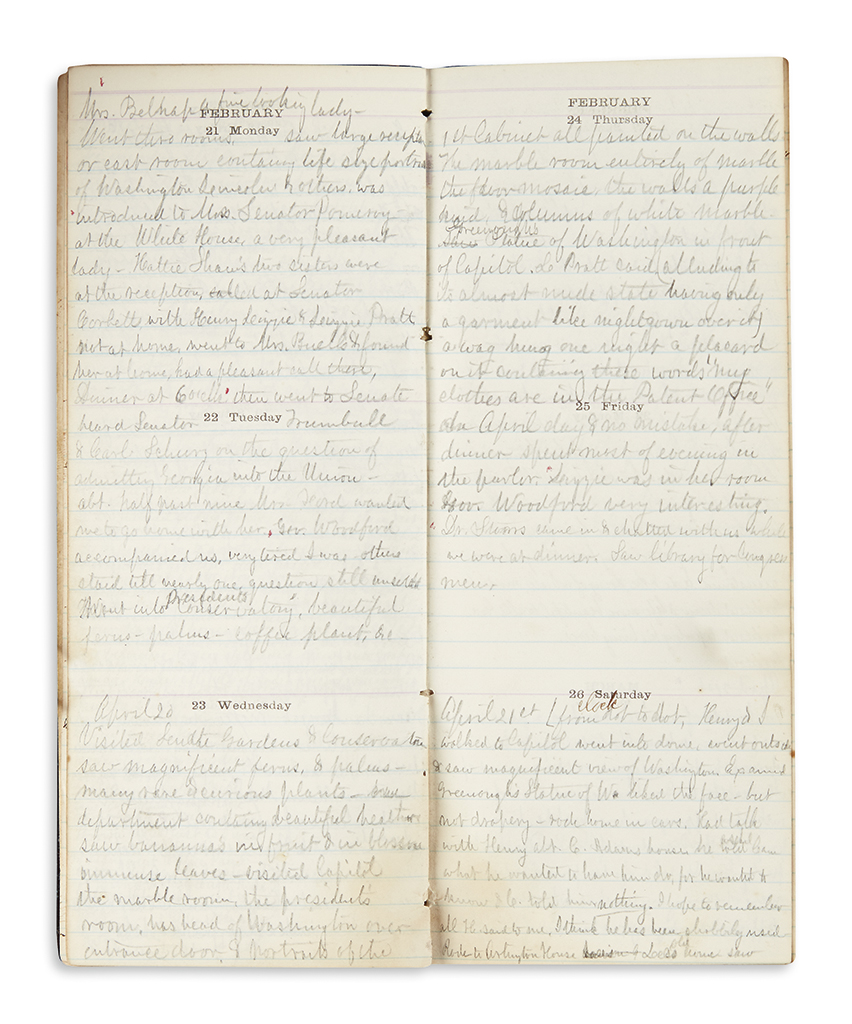 Mrs. Belknap a fine looking lady -
FEBRUARY
21 Monday
Went thro rooms, saw large reception
or east room containg life size portraits
of Washington Lincoln & others. was
introduced to Mrs. Senator Pomeroy
at the White House, a very pleasant
lady - Hattie Shaw's two sisters were
at the reception, called at Senator
Corbetts with Henry Lizzie & Lizzie Pratt
not at home, went to Mrs. Buell & found
her at home, had a pleasant call there,
Dinner at then went to Senate
22 Tuesday
heard Senator Trumbull
& Carl Schurz on the question of
admitting Georgia into the Union -
abt. half past nine Mrs. Ford wanted
me to go home with her. Gov. Woodford
accompanied us, very tired I was others
staid till nearly one, question still unsettled
Went into Presidents Conservatory, beautiful
ferns - palms - coffee plant, &c -
April 20 23 Wednesday
Visited Gardens & Conservatory
saw magnificent ferns, & palms -
many rare & curious plants -
department containg beautiful heathers
saw bananna's in fruit & in blossom
immense leaves - visited Capitol
the marble room, the president's
room, has head of Washington over
entrance door & portraits of the
FEBRUARY
24 Thursday
1st Cabinet all painted on the walls
The marble room entirely of marble
the floor mosaic, the walls a purple
kind, & columns of white marble -
Saw Greenough's Statue of Washington in front
of Capitol. L. Pratt said (alluding to
its almost nude state having only
a garment like nightgown over it)
a wag hung one night a placard
on it containing these words "my
clothes are in the Patent Office"
25 Friday
An April day & no mistake, after
dinner spent most of evening in
the parlor. Lizzie was in her room
Gov. Woodford very interesting.
Dr. came in & chatted with us while
we were at dinner. Saw library for Congress
men.
26 Saturday
April 21st [from clock Dot to Dot, Henry & I
walked to Capitol went into dome, went outside
& saw magnificent view of Washington. Examined
Greenoughs Statue of Wa liked the face - but
not drapery - rode home in cars. Had talk
with Henry abt. C. Adams house he
what he wanted to have him do, for he wanted to
know I C. told him nothing. I hope to remember
all H. said to me, I think he has been shabbily used
Rode to Arlington House Lees old home saw